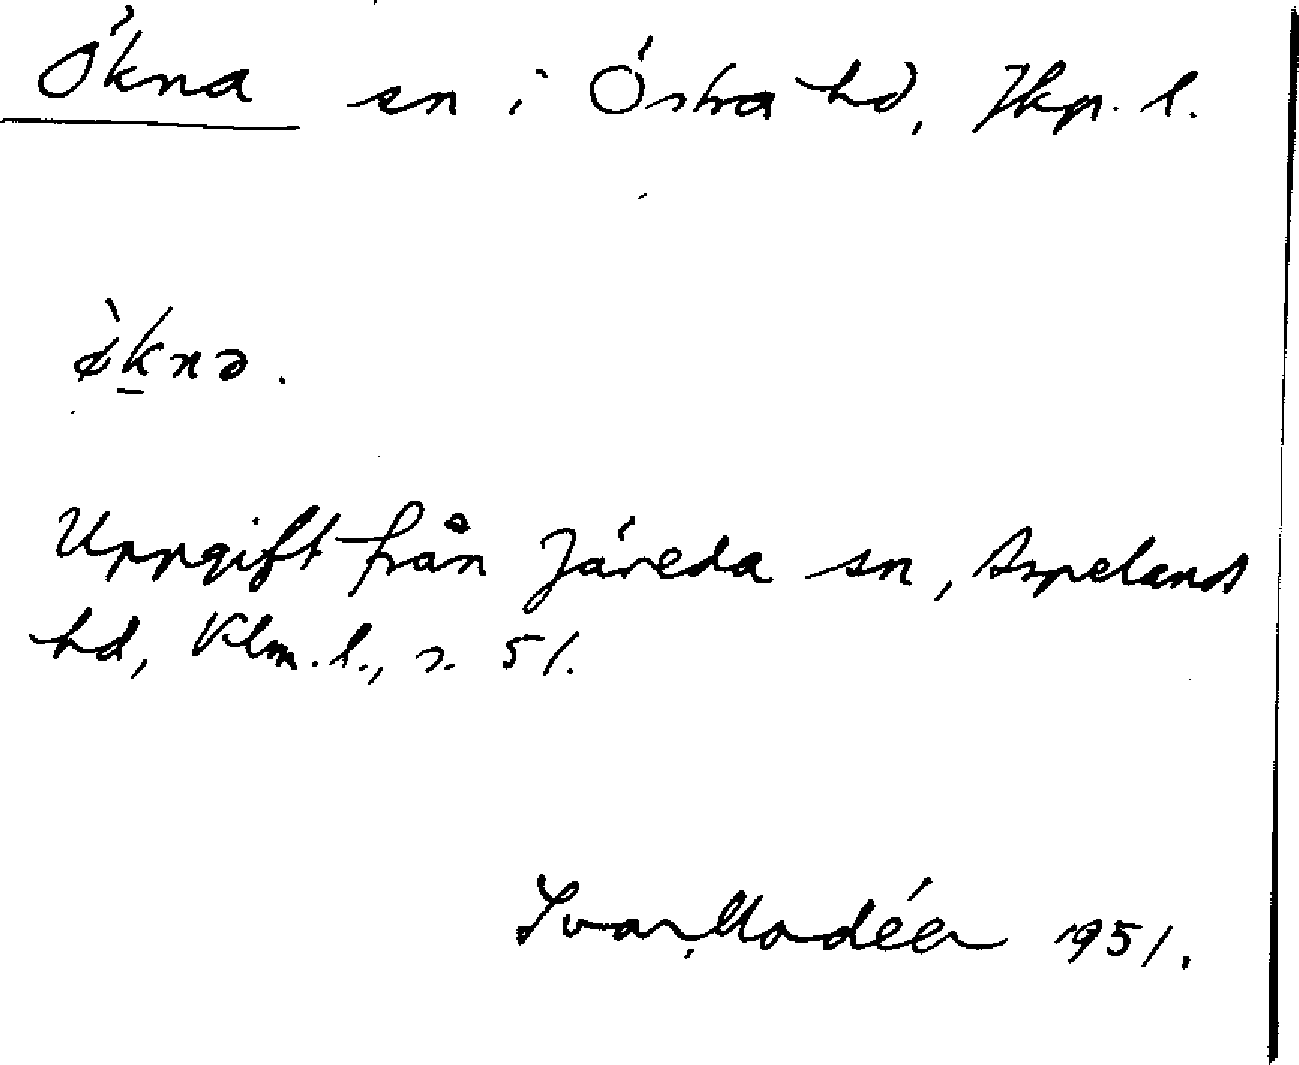 Ökna sn i Östra hd, Jkp. l.
ø̀k̲nə.
Uppgift från Järeda sn, Aspelands
hd, Klm. l., s. 51.
Ivar Modéer 1951.